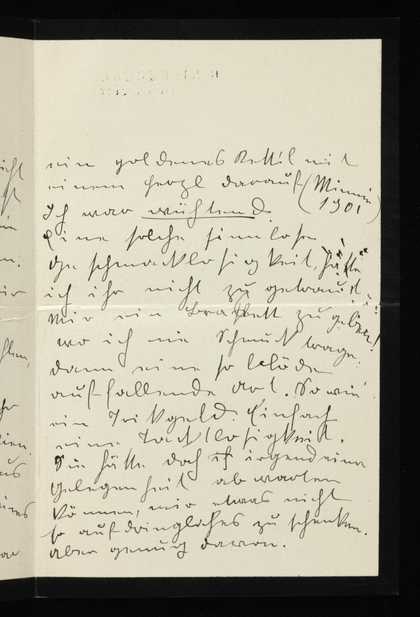 ein goldenes Kett'l mit
einem Herzl darauf (Minnie
1901)
Ich war wüthend.
Eine solche sinnlose
Geschmacklosigkeit hätte
ich ihr nicht zugetraut
Mir ein zu geben!
wo ich nie Schmuck trage.
dann eine so blöde
auffallende Art. So wie
ein Trinkgeld. Einfach
eine Tactlosigkeit.
Sie hätte doch irgend eine
Gelegenheit abwarten
können, mir etwas nicht
so aufdringliches zu schenken.
Aber genug davon.